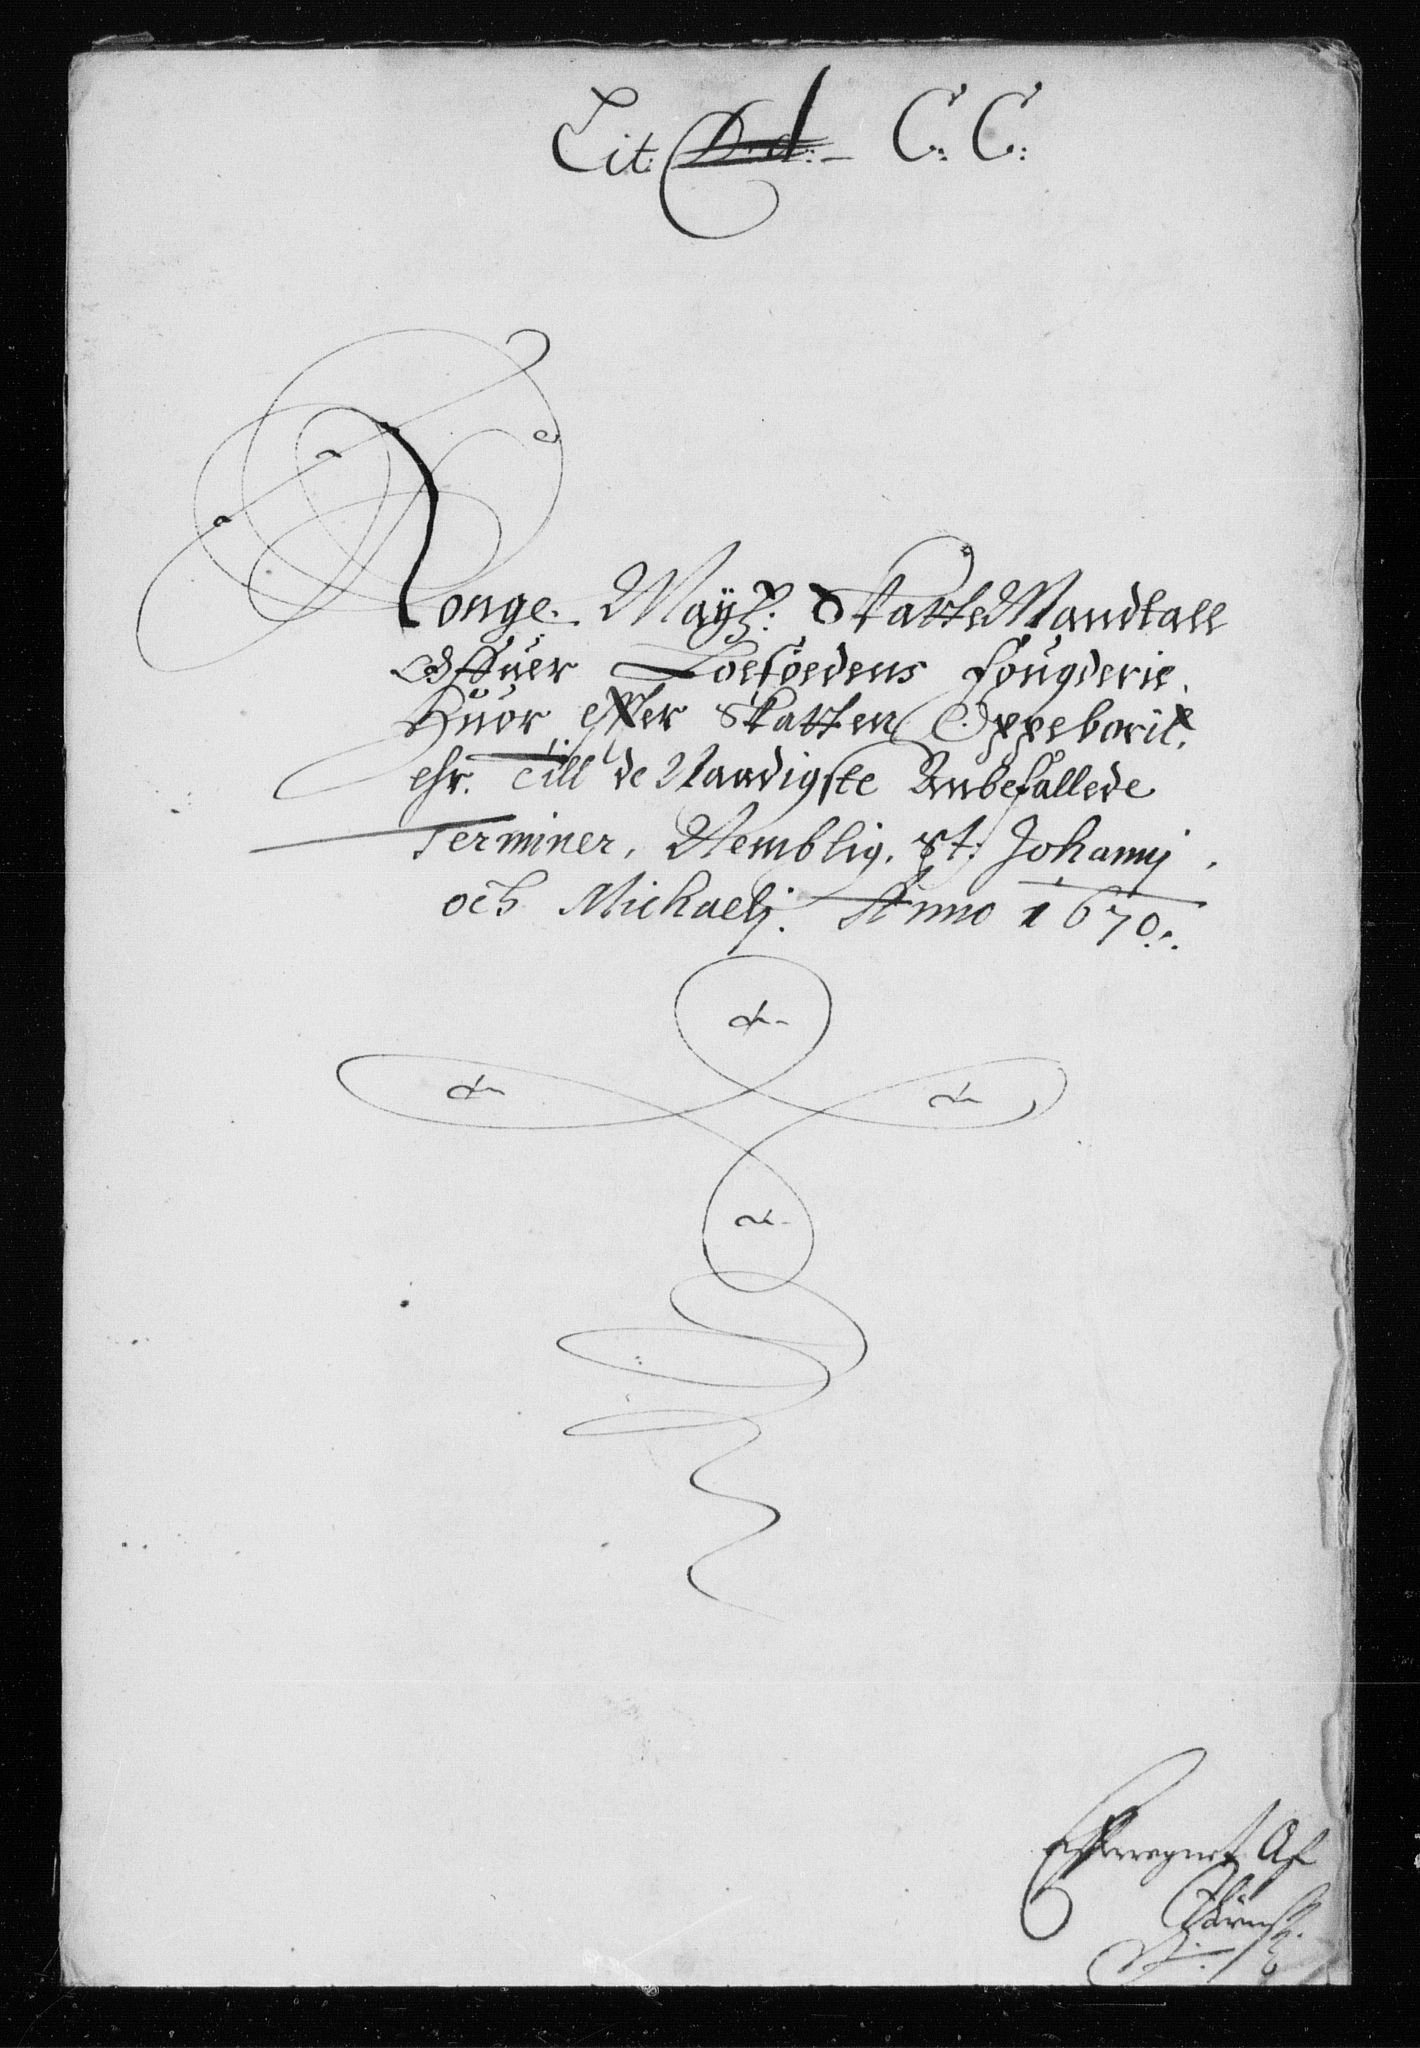 Lit: D.d:- C: C:
Konge. Mayst: Skatte Mandtall
Offuer Loefoedens fougderie.
Huor effter Skatten Oppeborit.
ehr. Till de Naadigste Anbefallede
Terminer, Nemblig. St: Johannj.
och Michaelj. Anno 1670.
Effterregnet Af